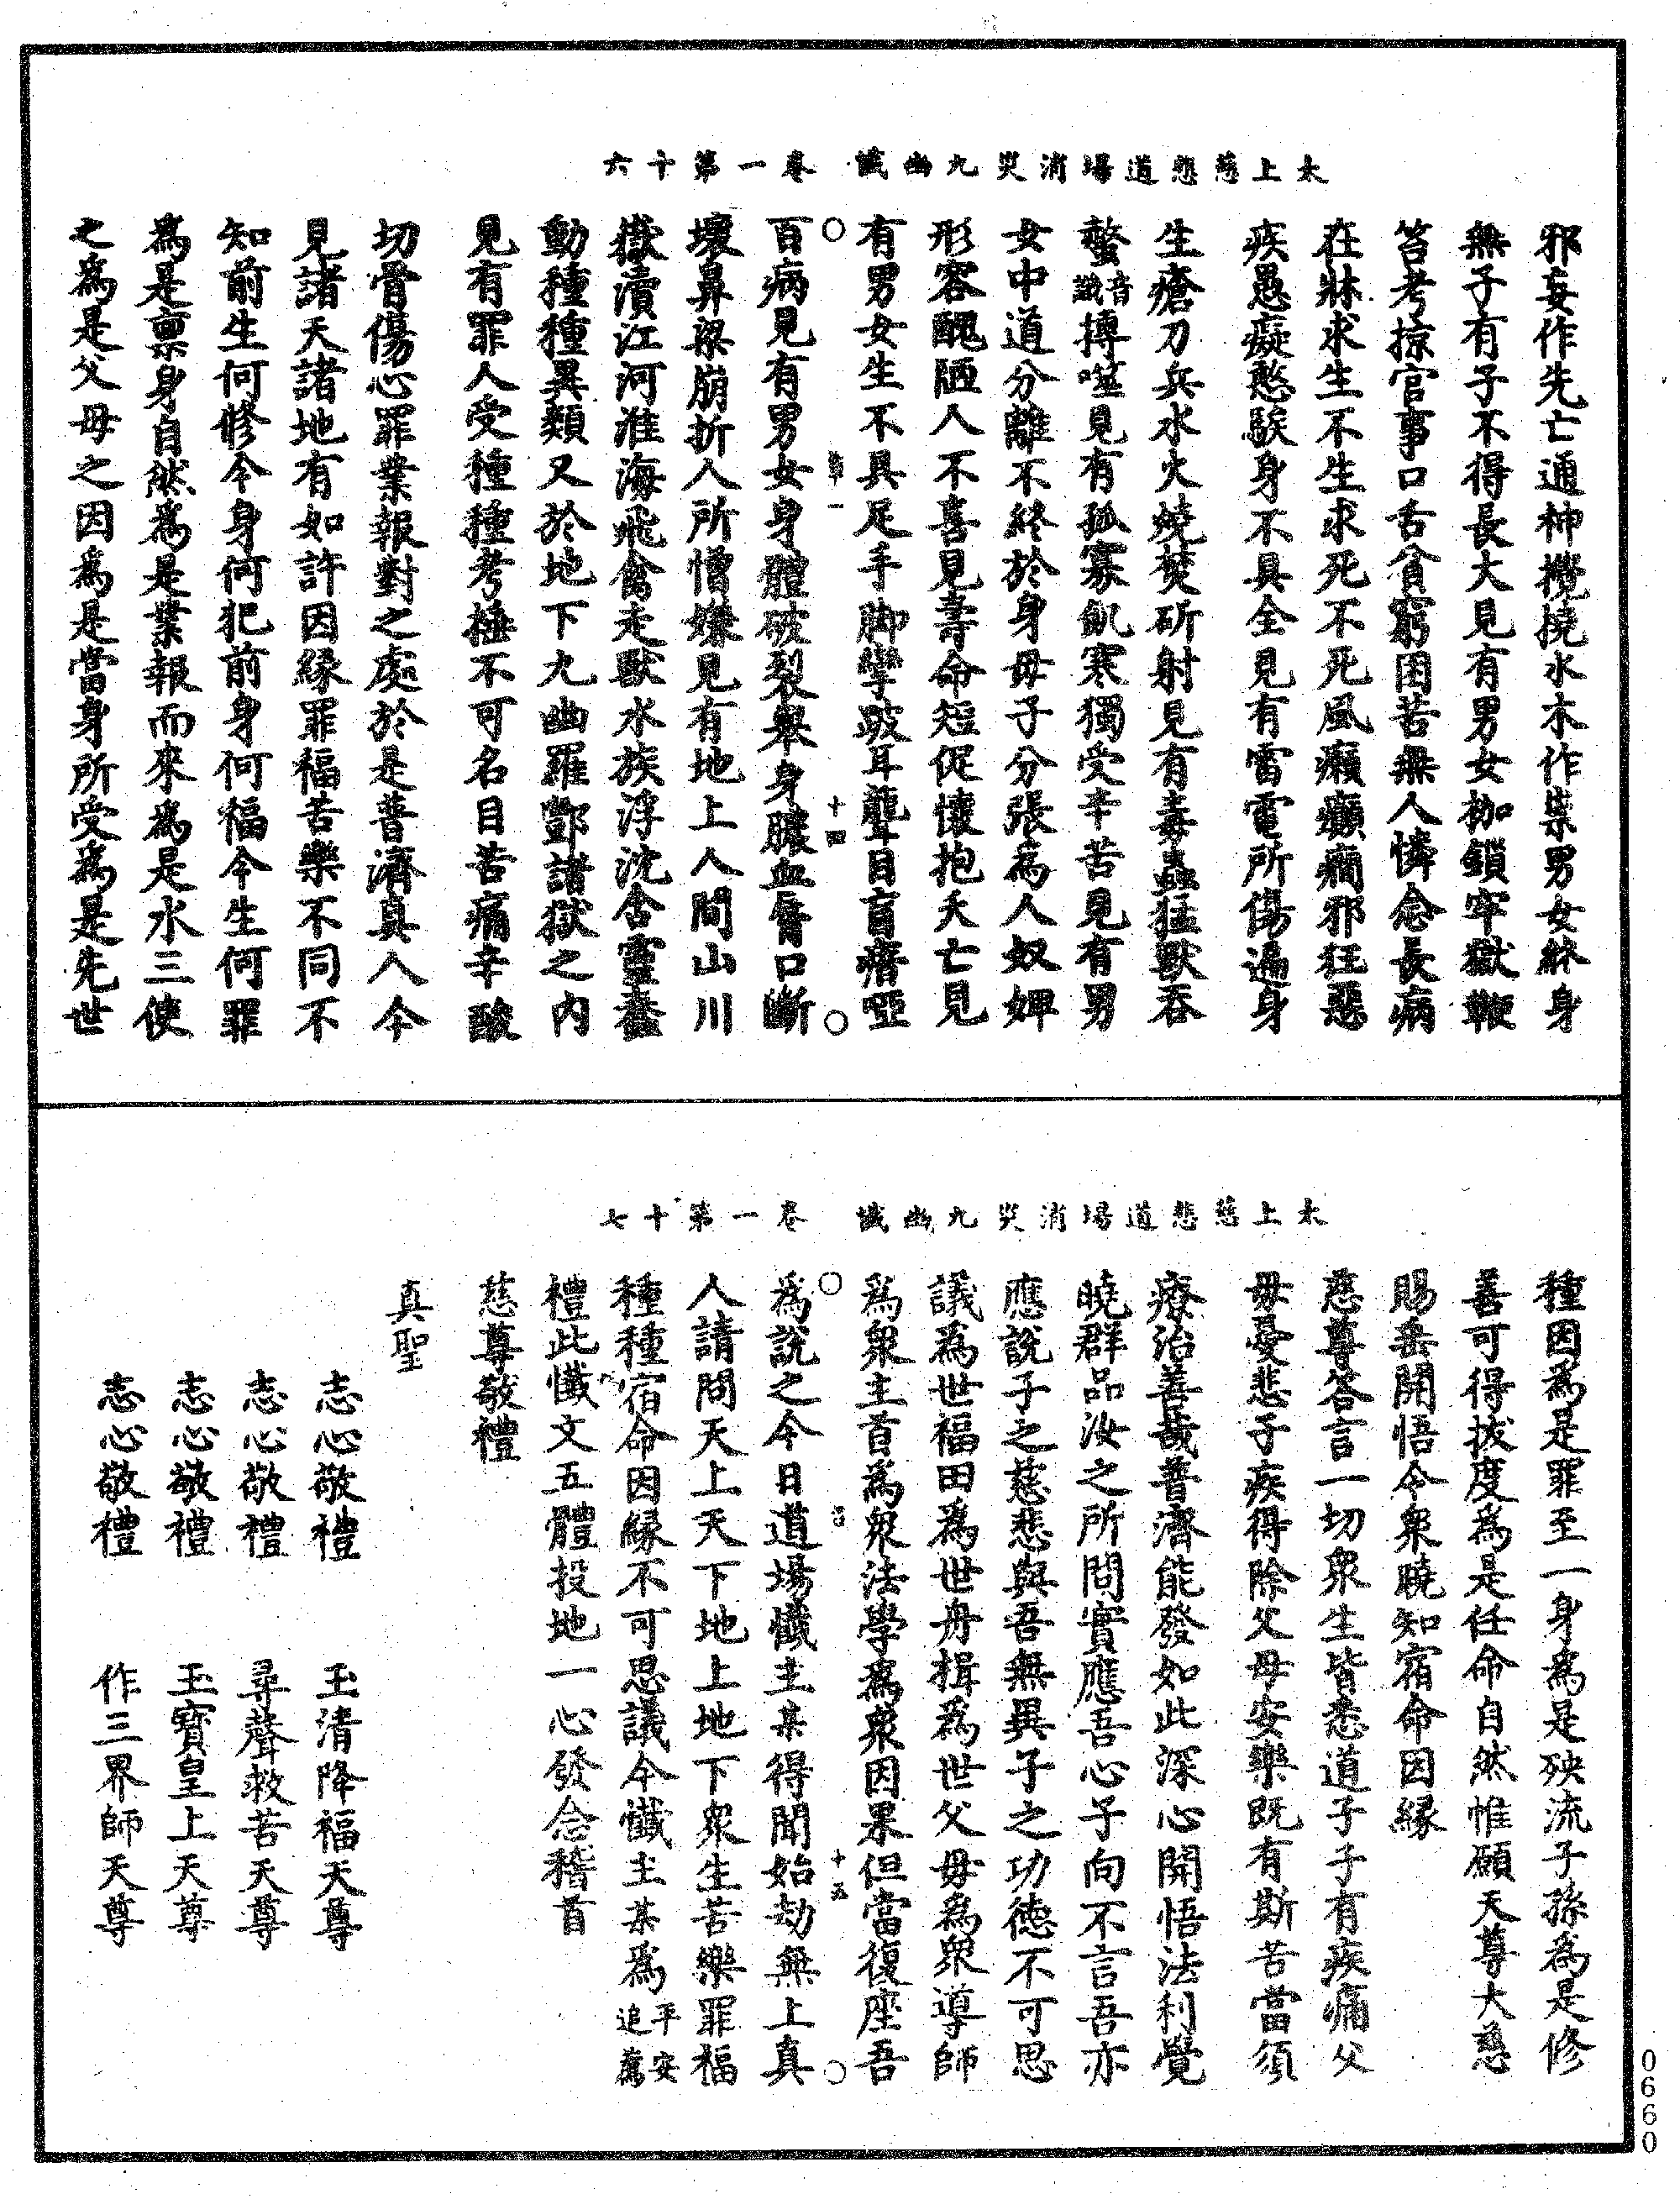 太上慈悲道場消災九幽懺　卷一第十六
邪妄作先亡通神攪撓水木作祟男女絲身
無子有子不得長大見有男女枷鎖牢獄鞭
笞考掠官事口舌貧窮困苦無人憐念長病
在牀求生不生求死不死風癩癲癇邪狂惡
疾愚癡憨騃身不具全見有雷電所傷遍身
生瘡刀兵水火燒焚斫射見有毒蟲猛獸吞
螫音讖搏噬見有孤寡飢寒獨受辛苦見有男
女中道分離不終於身毋子分張為人奴婢
形容醜陋人不喜見壽命短促懷抱夭亡見
有男女生不具足手脚攣跛耳聾目盲瘖啞
百病見有男女身體破裂舉身膿血脣口斷
壞鼻梁崩折人所憎嫌見有地上人間山川
嶽瀆江河淮海飛禽走獸水族浮沈含靈蠢
動種種異類又於地下九幽羅酆諸獄之內
見有罪人受種種考捶不可名目苦痛辛酸
切骨傷心罪業報對之處於是普濟真人今
見諸天諸地有如許因縁罪福苦樂不同不
知前生何修今身何犯前身何福今生何罪
為是稟身自然為是業報而來為是水三使
之為是父毋之因為是當身所受為是先世
十四
太上慈悲道場消災九幽懺　卷一第十七
種因為是罪至一身為是殃流子孫為是修
善可得拔度為是任命自然惟願天尊大慈
賜垂開悟令衆曉知宿命因縁
慈尊答言一切衆生皆悉道子子有疾痛父
毋憂悲子疾得除父毋安樂既有斯苦當須
療治善哉普濟能發如此深心開悟法利覺
曉群品汝之所問實應吾心子向不言吾亦
應說子之慈悲與吾無異子之功德不可思
議為世福田為世舟楫為世父毋為衆導師
為衆主首為衆法學為衆因果但當復座吾
為說之今日道場懺主某得聞始劫無上真
人請問天上天下地上地下衆生苦樂罪福
種種宿命因縁不可思議今懺主某為平安追薦
禮此懺文五體投地一心發念稽首
慈尊敬禮
真聖
志心敬禮　玉清降福天尊
志心敬禮　尋聲救苦天尊
志心敬禮　玉寶皇上天尊
志心敬禮　作三界師天尊
十五
0660